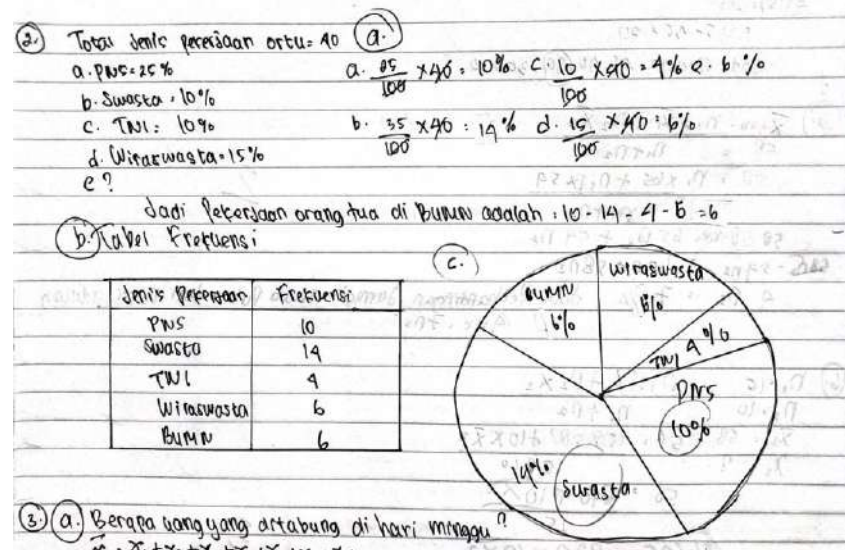 2. Total Jenis Pekerjaan ortu = 40 a.
a. PNS = 25%
b. Swasta = 10%
c. TNI = 10%
d. Wiraswasta = 15%
e ?
a. 25/100 x 40 = 10% c 10/100 x 40 = 4% e. 6%
b. 35/100 x 40 = 14% d. 15/100 x 40 = 6%
Jadi Pekerjaan orang tua di BUMN adalah : 10 - 14 - 4 - 6 = 6
b. Tabel Frekuensi
Jenis Pekerjaan Frekuensi
PNS 10
Swasta 14
TNI 4
Wiraswasta 6
BUMN 6
c.
Wiraswasta
6%
BUMN
6%
TNI 4%
PNS
10%
14%
Swasta
3. a. Berapa uang yang ditabung di hari minggu ?